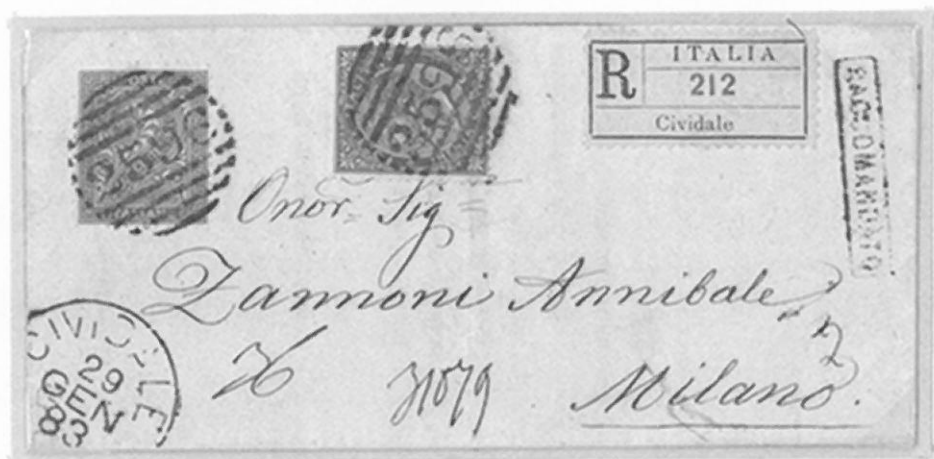 R
ITALIA
212
Cividale
RACCOMANDATO
Onor. Sig
Zannoni Annibale
Milano.
CIVIDALE
29
GEN
83